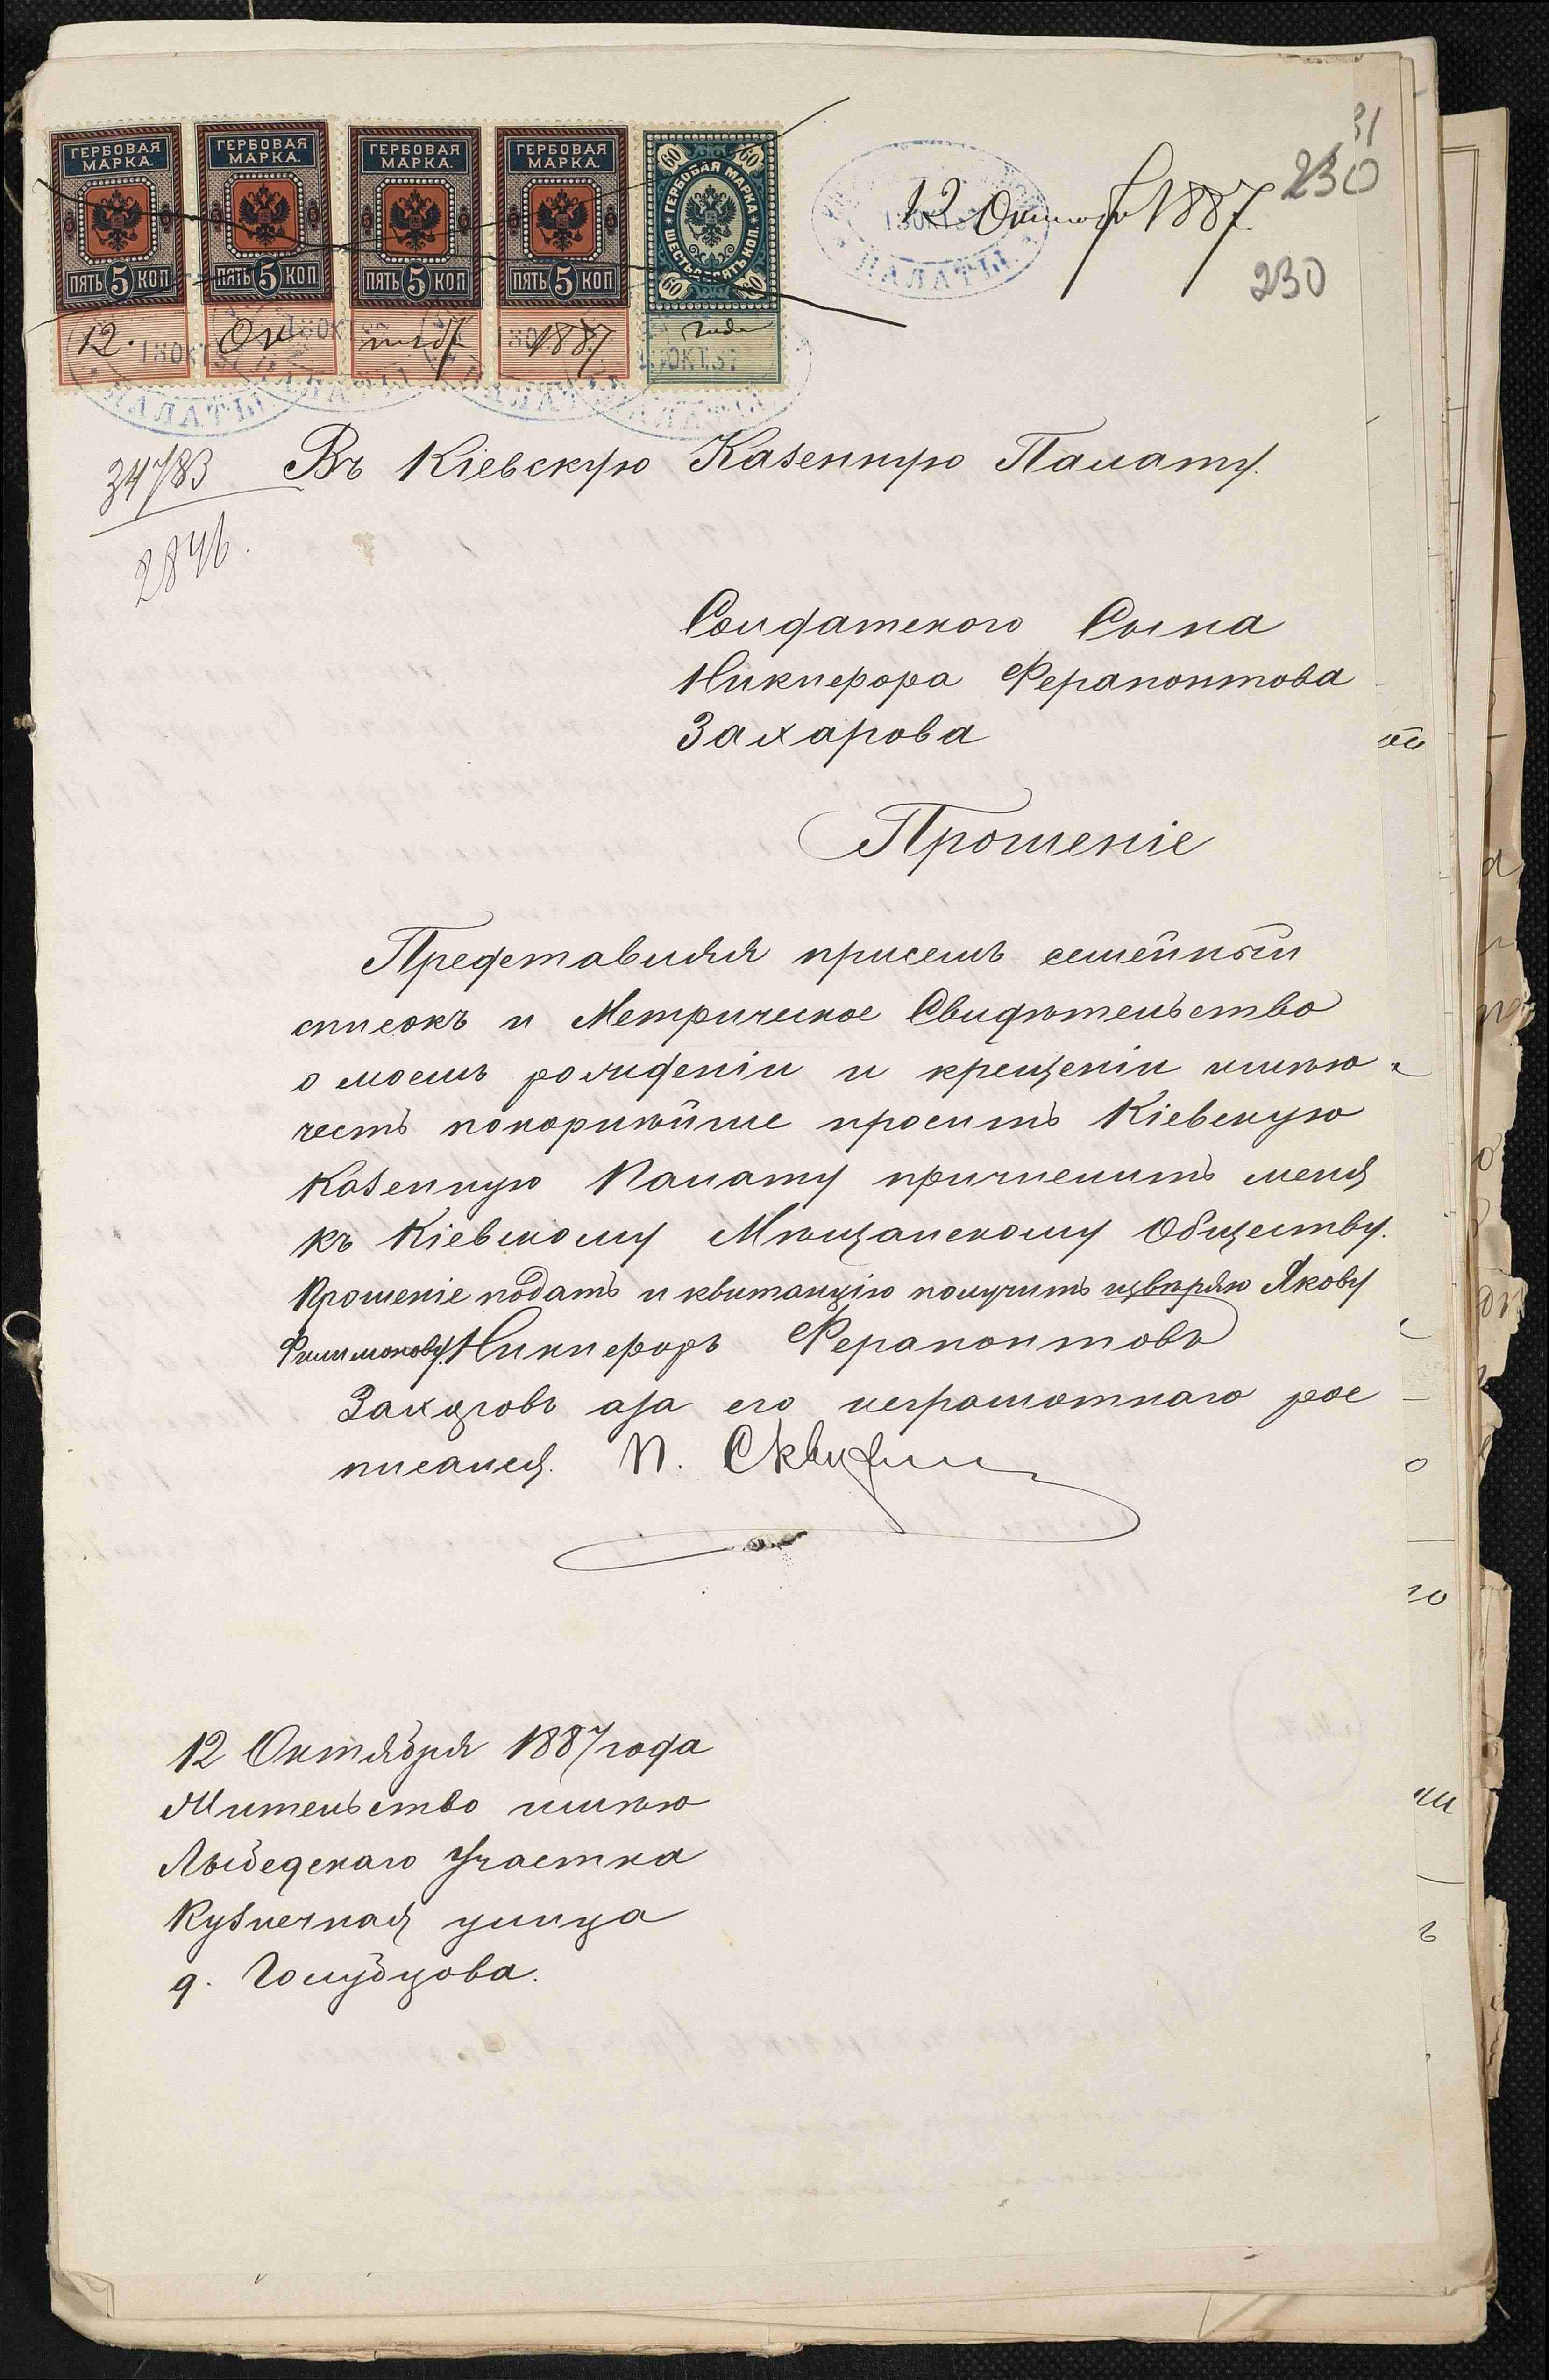 31
230
230
ГЕРБОВАЯ МАРКА. ГЕРБОВАЯ МАРКА. ГЕРБОВАЯ МАРКА. ГЕРБОВАЯ МАРКА. ГЕРБОВАЯ МАРКА
ПЯТЬ 5 КОП ПЯТЬ 5 КОП ПЯТЬ 5 КОП ПЯТЬ 5 КОП ШЕСТЬДЕСЯТЪ КОП. 60
12. Октяб 1887 года
12 Октября 1887.
13 ОКТ. 87
ПАЛАТЫ
34783
2846.
Въ Кіевскую Казенную Палату.
Солдатского Сына
Никифора Ферапонтова
Захарова
Прошеніе
Представляя присемъ семейный
списокъ и Метрическое Свидѣтельство
о моемъ рожденіи и крещеніи имѣю
честь покорнѣйше просить Кіевскую
Казенную Палату причислить меня
къ Кіевскому Мѣщанскому Обществу.
Прошеніе подать и квитанцію получить Якову
Филимонову. Никифоръ Ферапонтовъ
Захаровъ а за его неграмотнаго рос
писался. П.
12 Октября 1887 года
Жительство имѣю
Лыбедскаго Участка
Кузнечная улица
д. Голубцова.